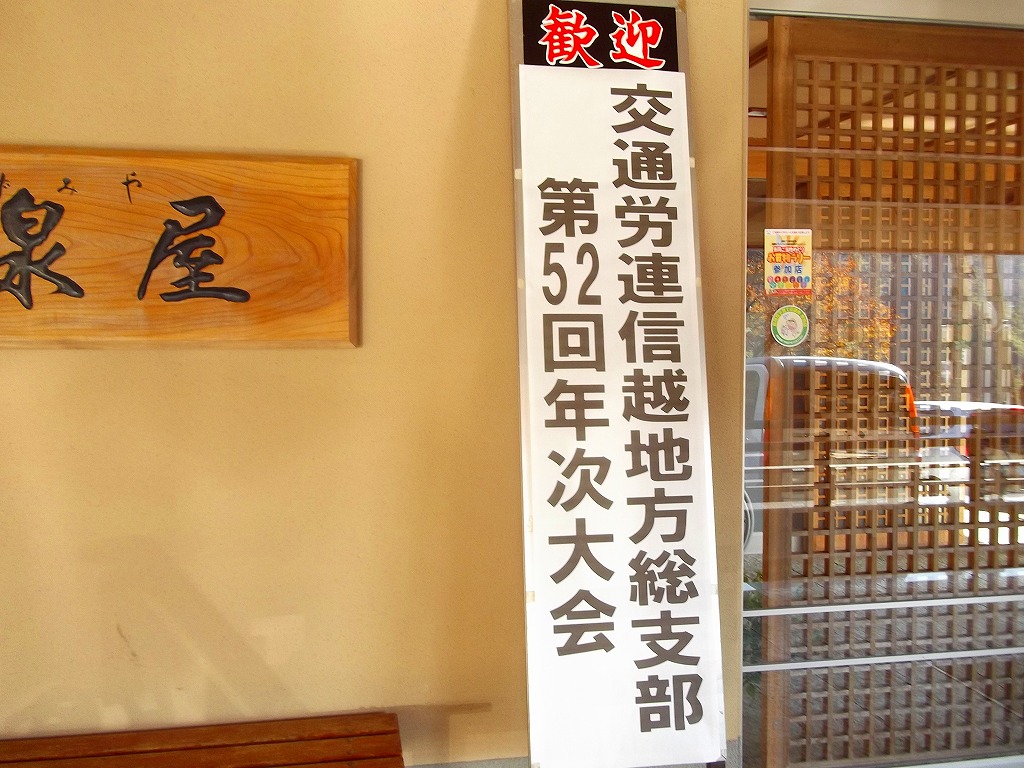 歓迎
交通労連信越地方総支部
第52回年次大会
みや
泉屋
参加店